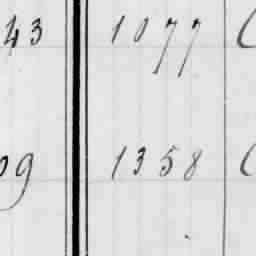 43 1077
09 1358